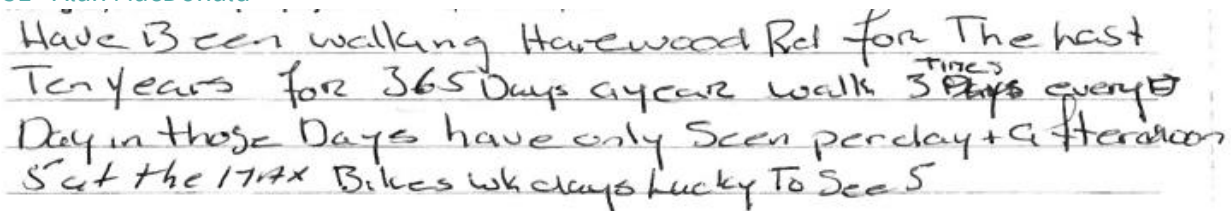 Have Been walking Harewood Rd for The hast
Ten years for 365 Days a year walk 3 Times every
Day in those Days have only Seen per day + afternoon
5 at the MAX Bikes wk days Lucky To See 5